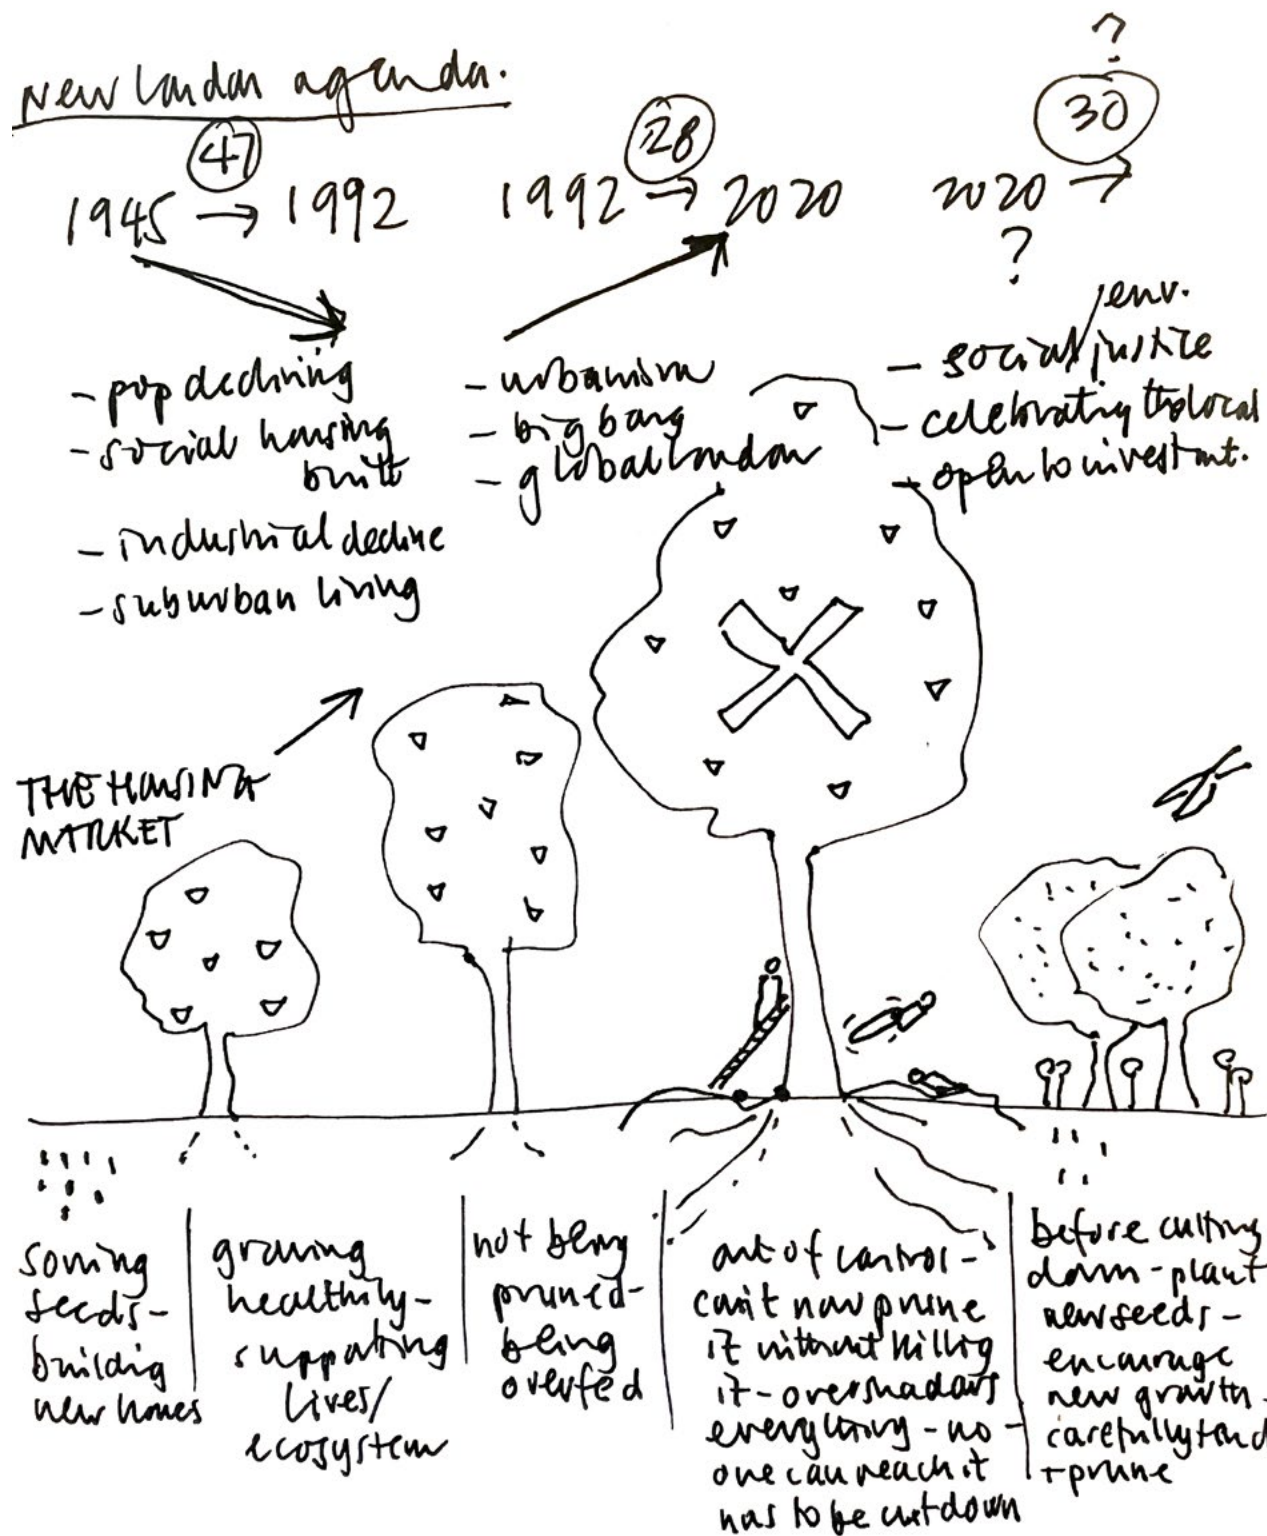 New London agenda.
47
1945 → 1992
28
1992 → 2020
?
30
2020 →
?
- pop declining
- social housing
built
- industrial decline
- suburban living
- urbanism
- big bang
- global London
/env.
- social justice
- celebrating the local
- open to investmt.
THE HOUSING
MARKET
sowing
seeds -
building
new homes
growing
healthily -
supporting
lives/
ecosystem
not being
pruned -
being
overfed
out of control -
can't now prune
it without killing
it - overshadows
everything - no -
one can reach it
has to be cut down
before cutting
down - plant
new seeds -
encourage
new growth -
carefully tend
+ prune